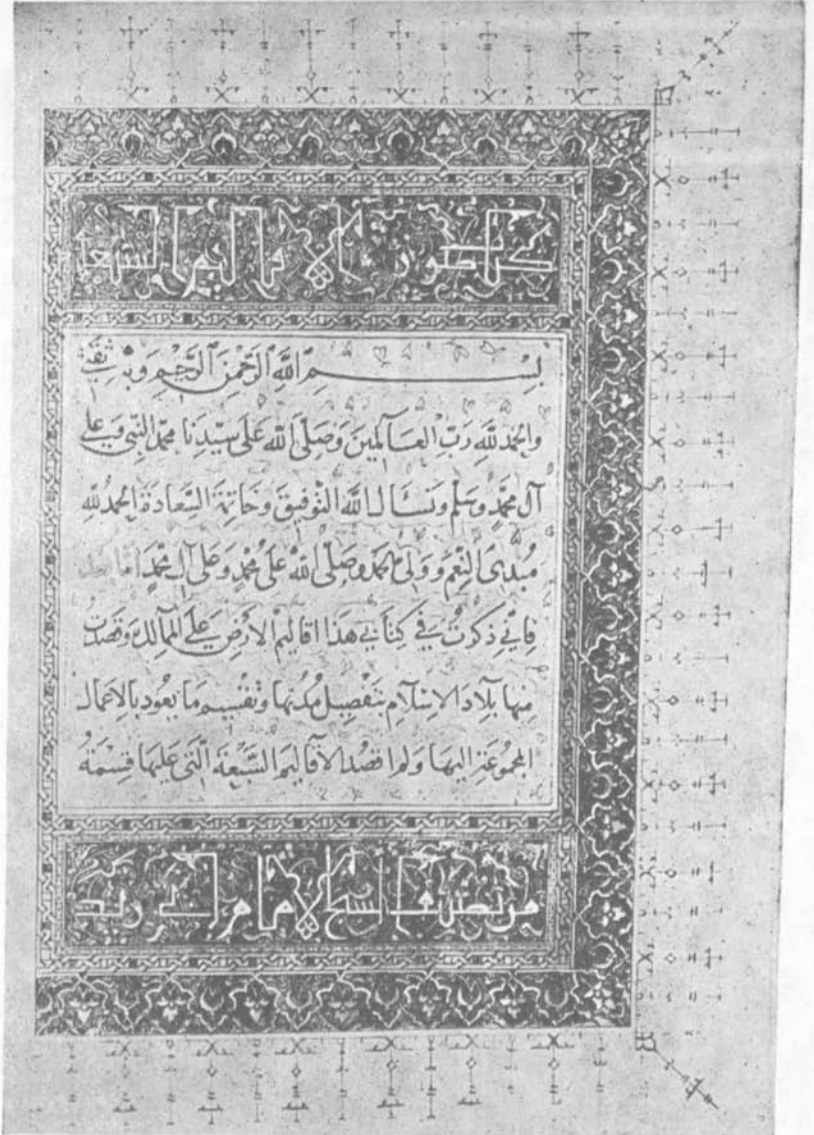 كتاب صور الأقاليم السبعة
بِسْمِ ٱللَّهِ ٱلرَّحْمٰنِ ٱلرَّحِيْمِ وَبِهِ ثِقَتِي
والحمد للّه رَبِّ العَالَمِينَ وَصَلَّى اللّه عَلى سَيّدِنَا محمّد النَّبِي وَعلى
آل محمَّدٍ وسَلّم ونَسْأل اللّهَ التَّوفيقَ وخَاتِمَةَ السَّعادَةَ الحمدُ للّهِ
مُبْدِئ النِّعَم وَوَلِيّ الحَمد وصَلّى اللّهُ عَلى مُحمّدٍ وَعَلى آل محمّدٍ امّا بعد
فاِنّي ذكرتُ في كتابي هَذا اقاليم الأرض على الممالك وقصدتُ
مِنها بلادَ الإسْلام بتَفصِيل مُدُنها وتقْسِيم مَا يَعُود بالاعمال
المجمُوعَة اليهَا وَلم اقصُد الأقاليمَ السَّبْعةَ الَّتي عَليها قِسْمَةُ
من تصنيف الشيخ الإمام ابي زيد